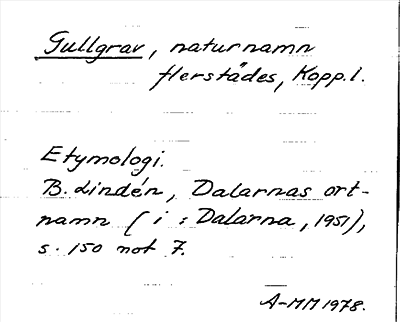 Gullgrav, naturnamn
flerstädes, Kopp.l.
Etymologi.
B. Lindén, Dalarnas ort-
namn (i: Dalarna, 1951),
s. 150 not 7.
A-MM 1978.